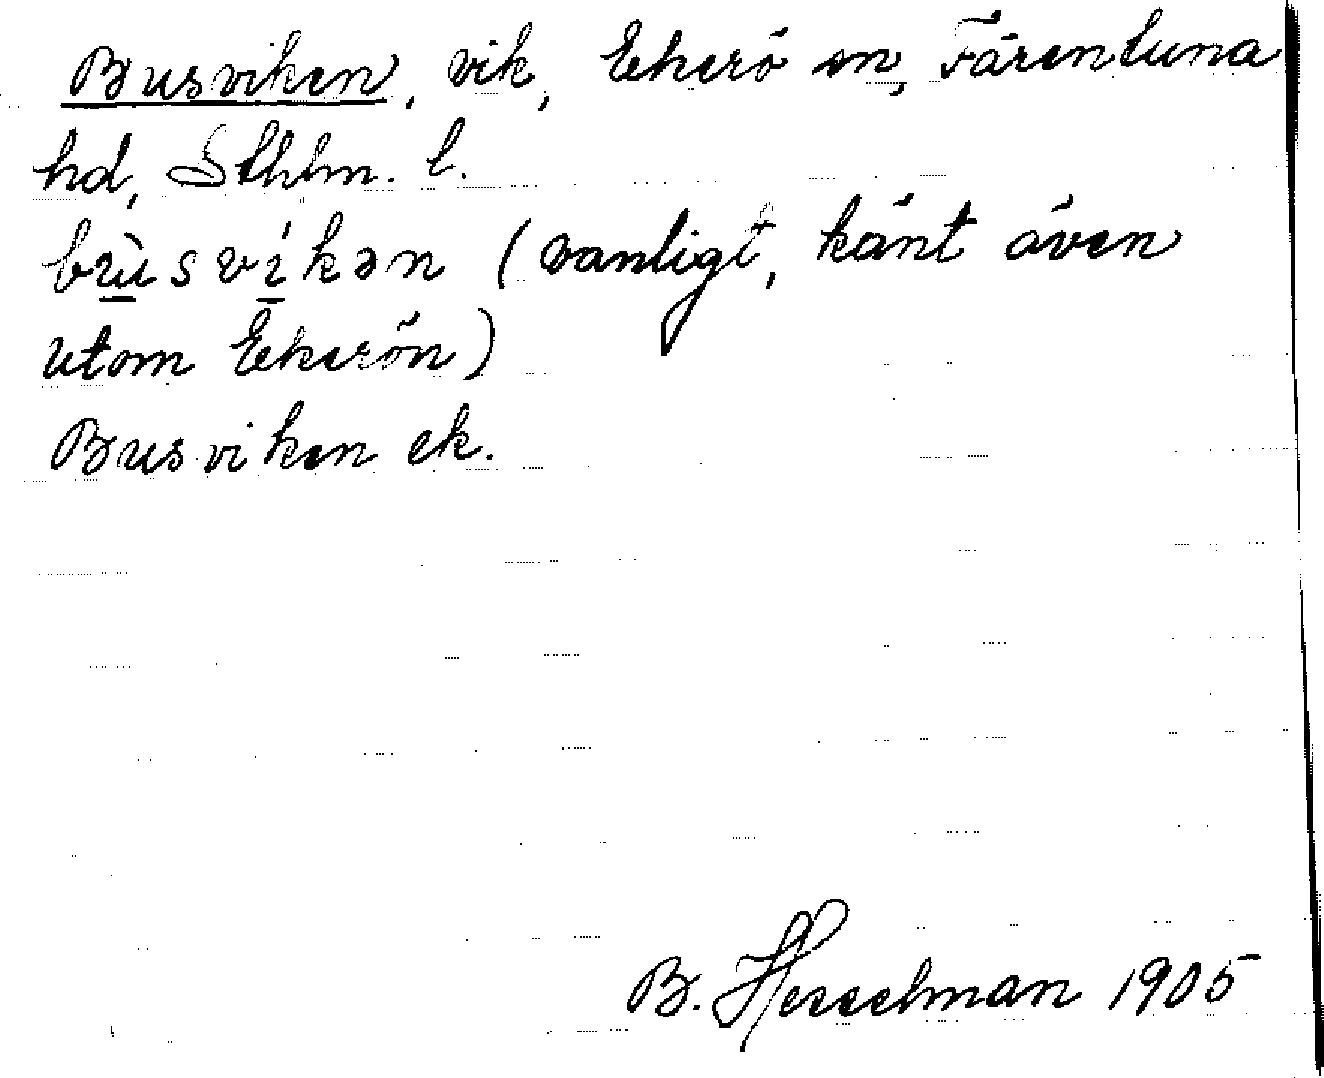 Busviken, vik, Ekerö sn, Färentuna
hd, Sthlm. l.
bù̲sví̲kən (vanligt, känt även
utom Ekerön)
Busviken ek.
B. Hesselman 1905